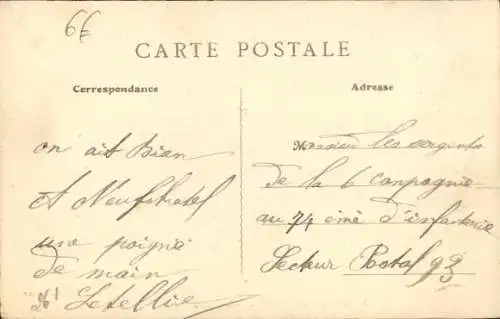 6€
CARTE POSTALE
Correspondance
Adresse
on ait Bien
A Neufchatel
une poigné
de main
Letellier
Monsieur les sergents
de la 6 Conpagnie
au 74 eme d'infanterie
Secteur Postal 93